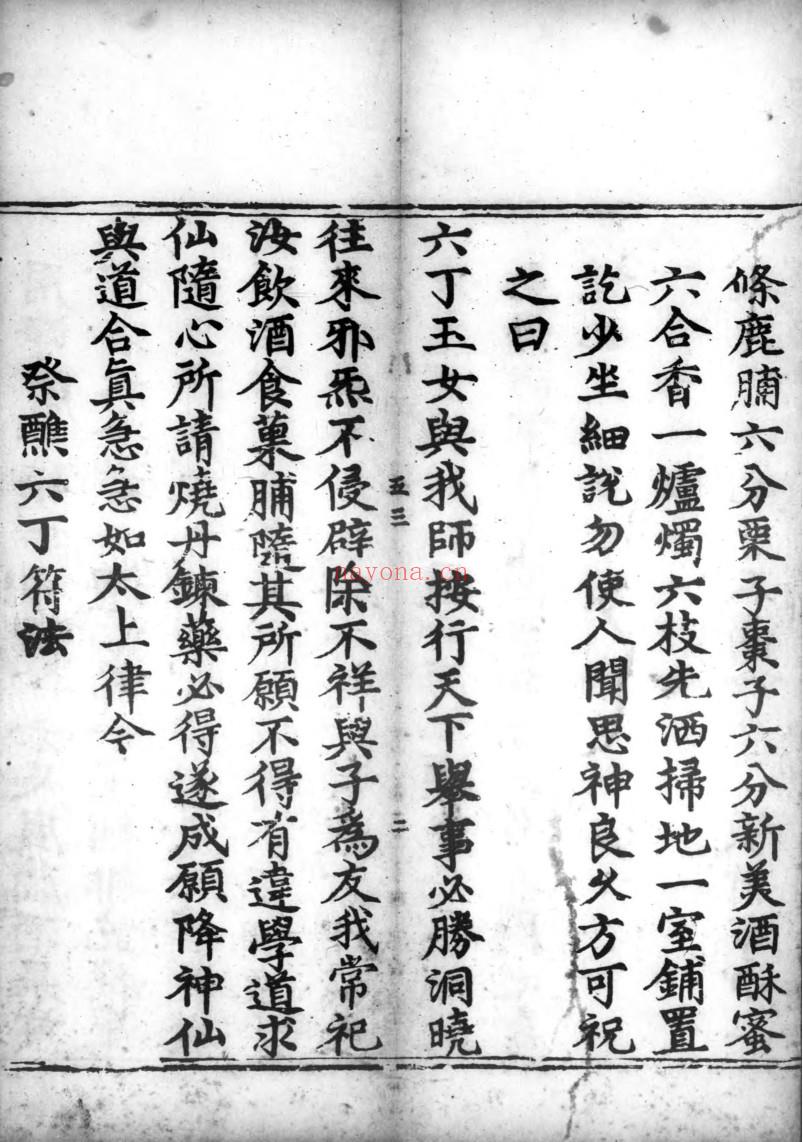 條鹿脯六分栗子棗子六分新美酒酥蜜
六合香一爐燭六枝先洒掃地一室鋪置
訖少坐細說勿使人聞思神良乆方可祝
之曰
六丁玉女與我師按行天下舉事必勝洞曉
往來邪炁不侵辟除不祥與子爲友我常祀
汝飲酒食菓脯隨其所願不得有違學道求
仙隨心所請燒丹鍊藥必得遂成願降神仙
與道合眞急急如太上律令
祭醮六丁符法
五三
二
nayona.cn